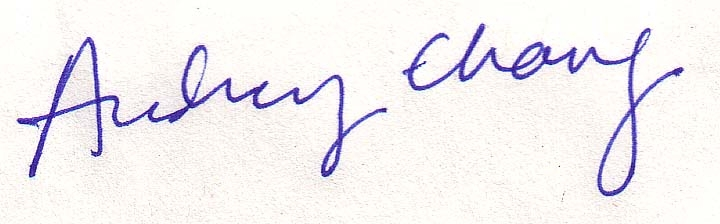 Audrey Chang